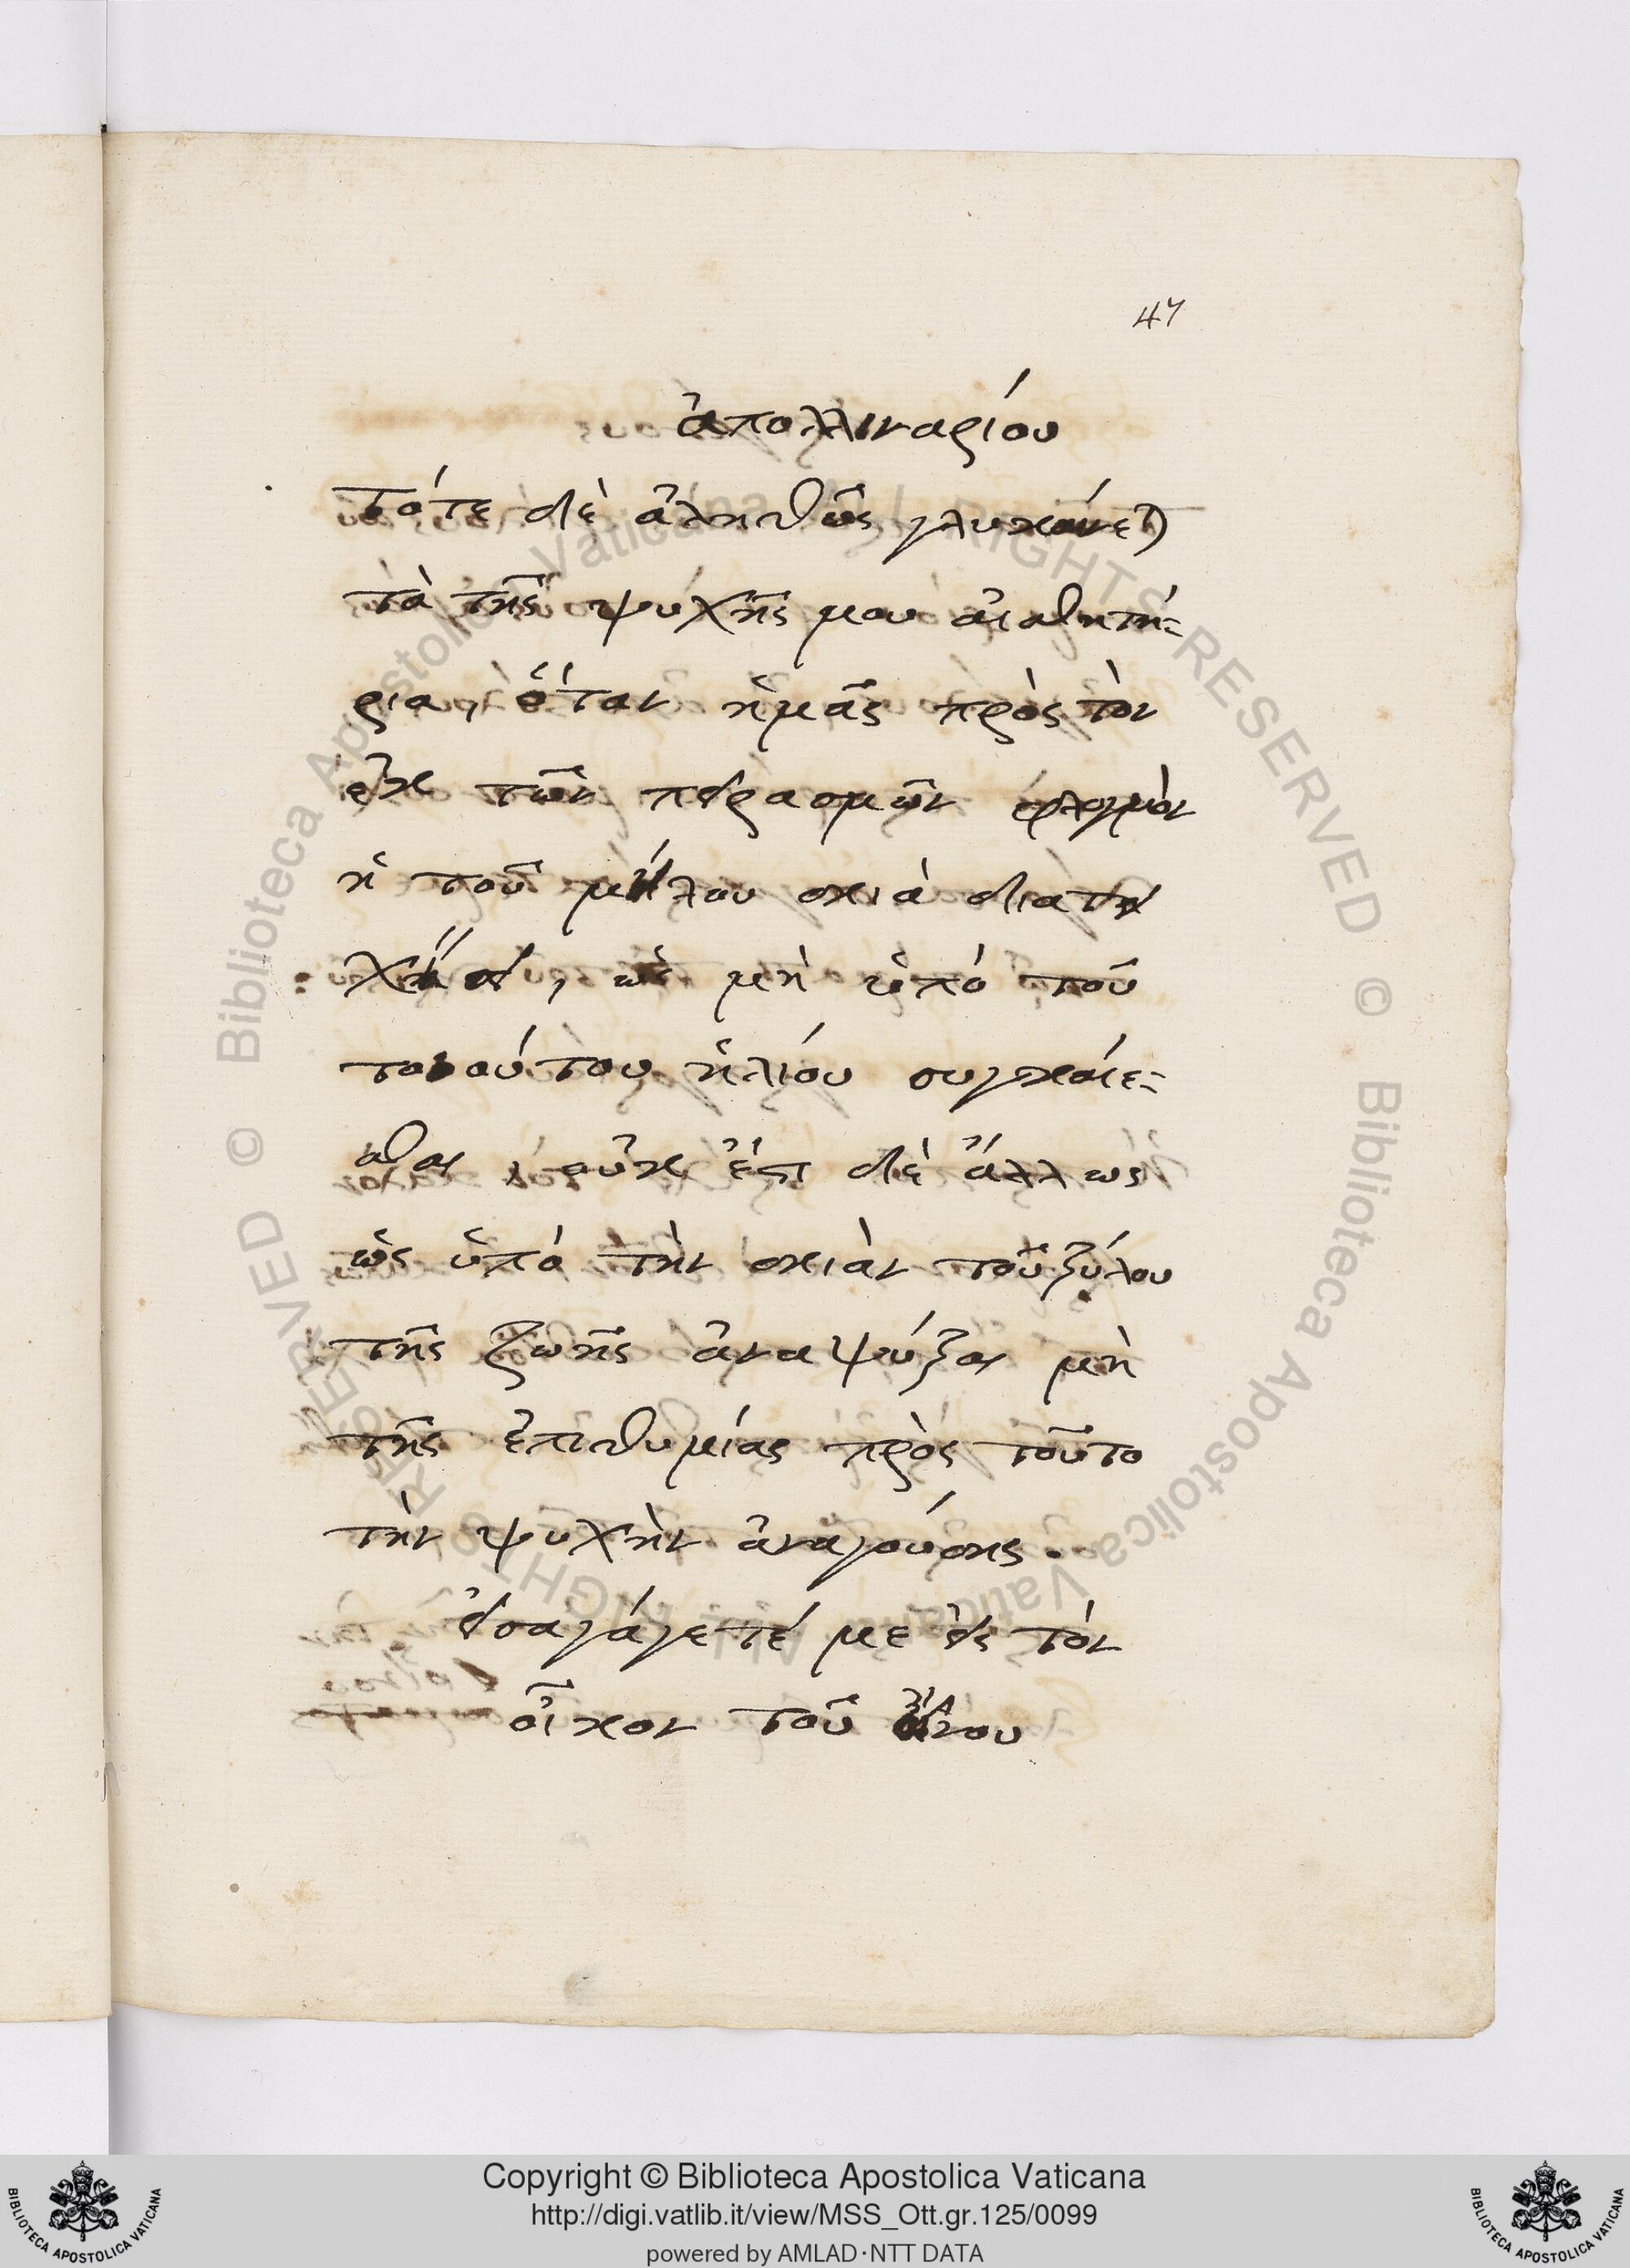 47
ἀπολλιναρίου
τότε δὲ ἀληθῶς γλυκαίνεται
τὰ τῆς ψυχῆς μου αἰσθητή-
ρια, ὅταν ἡμᾶς πρὸς τὸν
ἐκ τῶν πειρασμῶν φλογμὸν
ἡ τοῦ μήλου σκιὰ διατει
χίσει, ὡς μὴ ὑπὸ τοῦ
τοιούτου ἡλίου συγκαίε-
σθαι, οὐκ ἔστι δὲ ἄλλως
ὡς ὑπὸ τὴν σκιὰν τοῦ ξύλου
τῆς ζωῆς ἀναψύξαι μὴ
τῆς ἐπιθυμίας πρὸς τοῦτο
τὴν ψυχὴν ἀναγούσης.
εἰσαγάγετέ με εἰς τὸν
οἶκον τοῦ οἴνου
© Biblioteca Apostolica Vaticana ALL RIGHTS RESERVED © Biblioteca Apostolica Vaticana ALL RIGHTS RESERVED
Copyright © Biblioteca Apostolica Vaticana
http://digi.vatlib.it/view/MSS_Ott.gr.125/0099
powered by AMLAD·NTT DATA
BIBLIOTECA APOSTOLICA VATICANA
BIBLIOTECA APOSTOLICA VATICANA